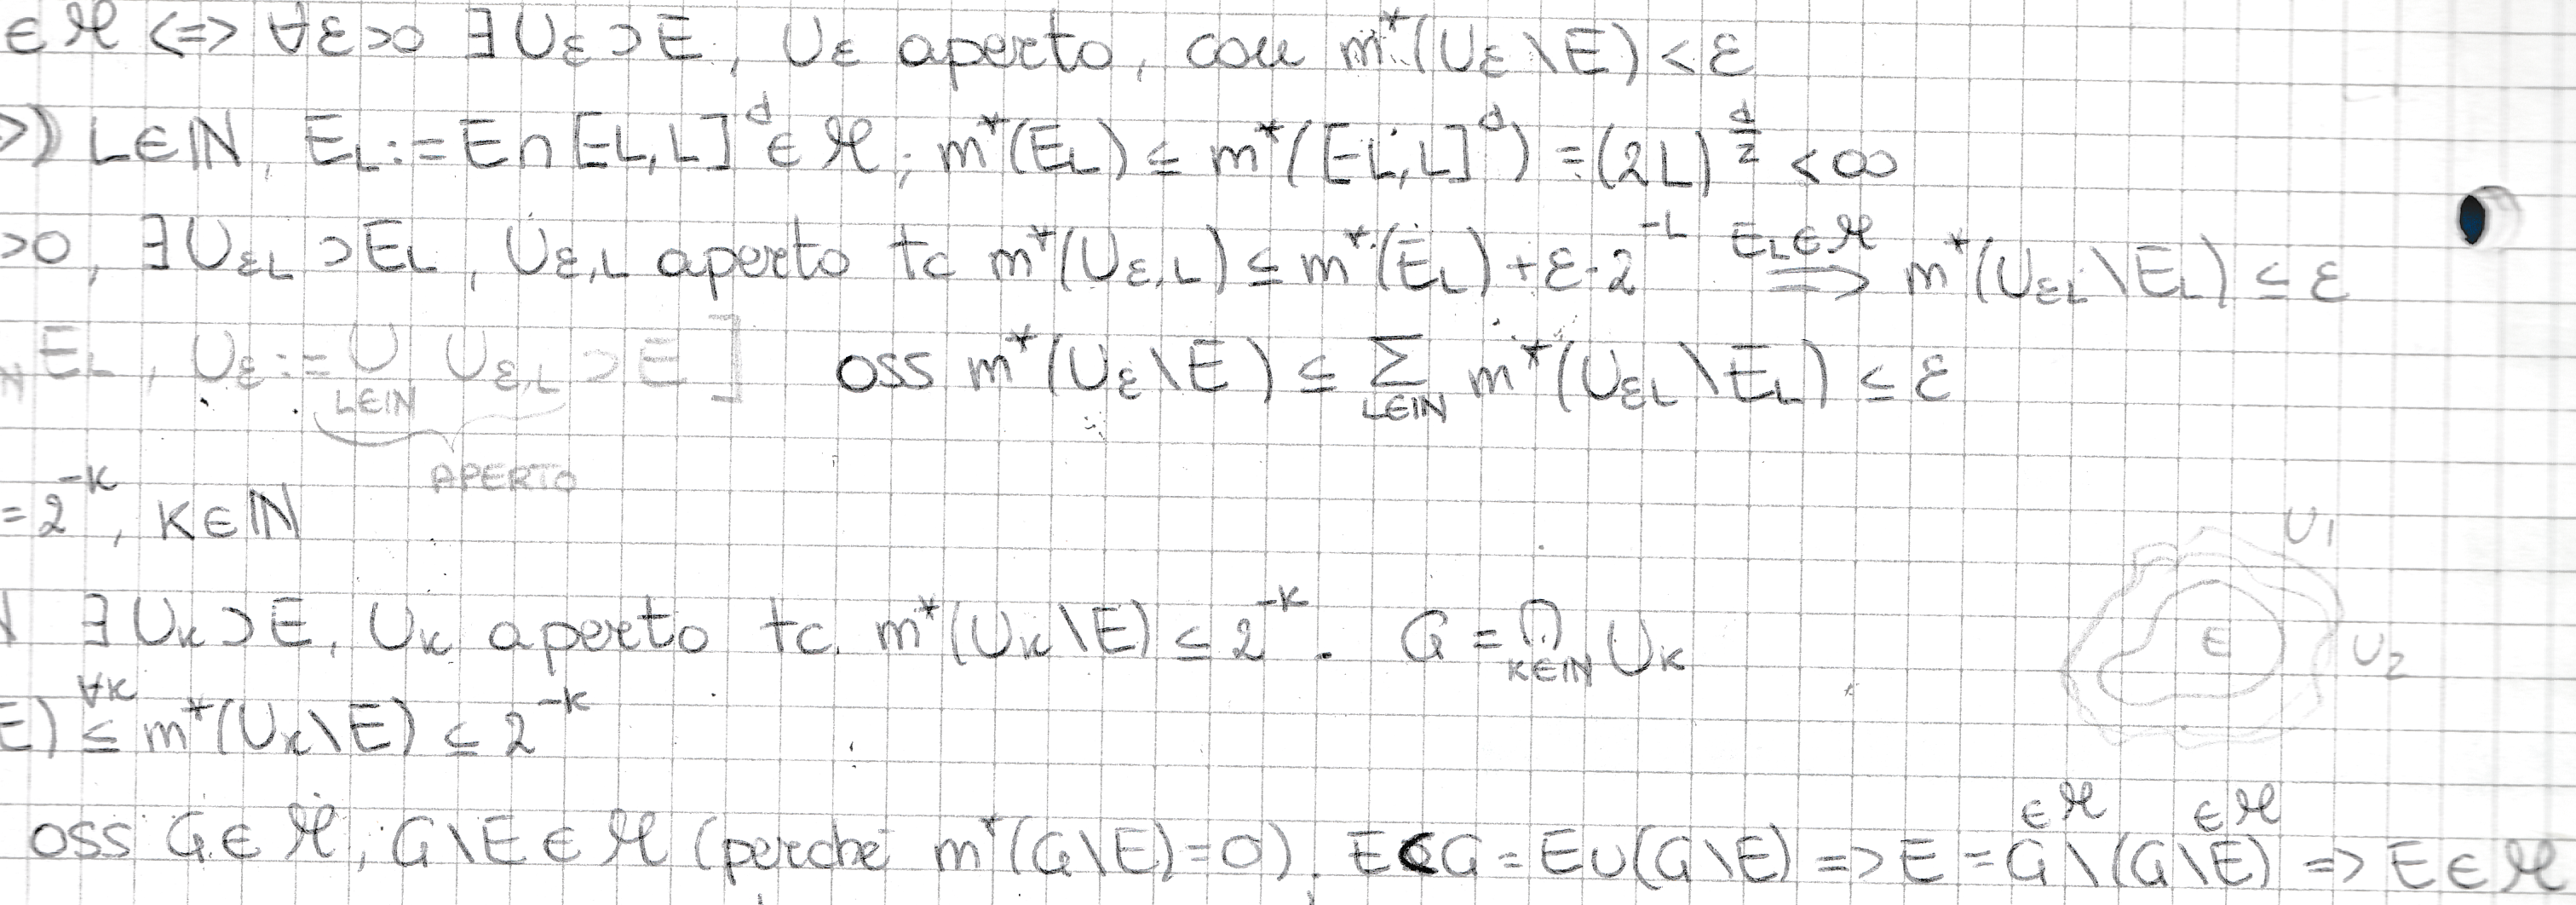 ∈ M <=> ∀ε>0 ∃ Uε ⊃ E, Uε aperto, con m*(Uε \ E) < ε
=>) L∈ℕ, E_L := E ∩ [-L, L]^d ∈ M; m*(E_L) ≤ m*([-L, L]^d) = (2L)^(d/2) < ∞
>0, ∃ U_εL ⊃ E_L, U_ε,L aperto tc m*(U_ε,L) ≤ m*(E_L) + ε·2^-L =>^(E_L∈M) m*(U_εL \ E_L) ≤ ε
E_L, Uε := ∪_(L∈ℕ) U_ε,L ⊃ E ] oss m*(Uε \ E) ≤ Σ_(L∈ℕ) m*(U_εL \ E_L) ≤ ε
APERTO
= 2^-K, K∈ℕ
U1
∃ U_K ⊃ E, U_K aperto tc. m*(U_K \ E) ≤ 2^-K. G = ∩_(K∈ℕ) U_K
E
U2
E) ≤^(∀K) m*(U_K \ E) ≤ 2^-K
∈ M ∈ M
oss G ∈ M, G \ E ∈ M (perché m*(G \ E) = 0). E ⊂ G = E ∪ (G \ E) => E = G \ (G \ E) => E ∈ M